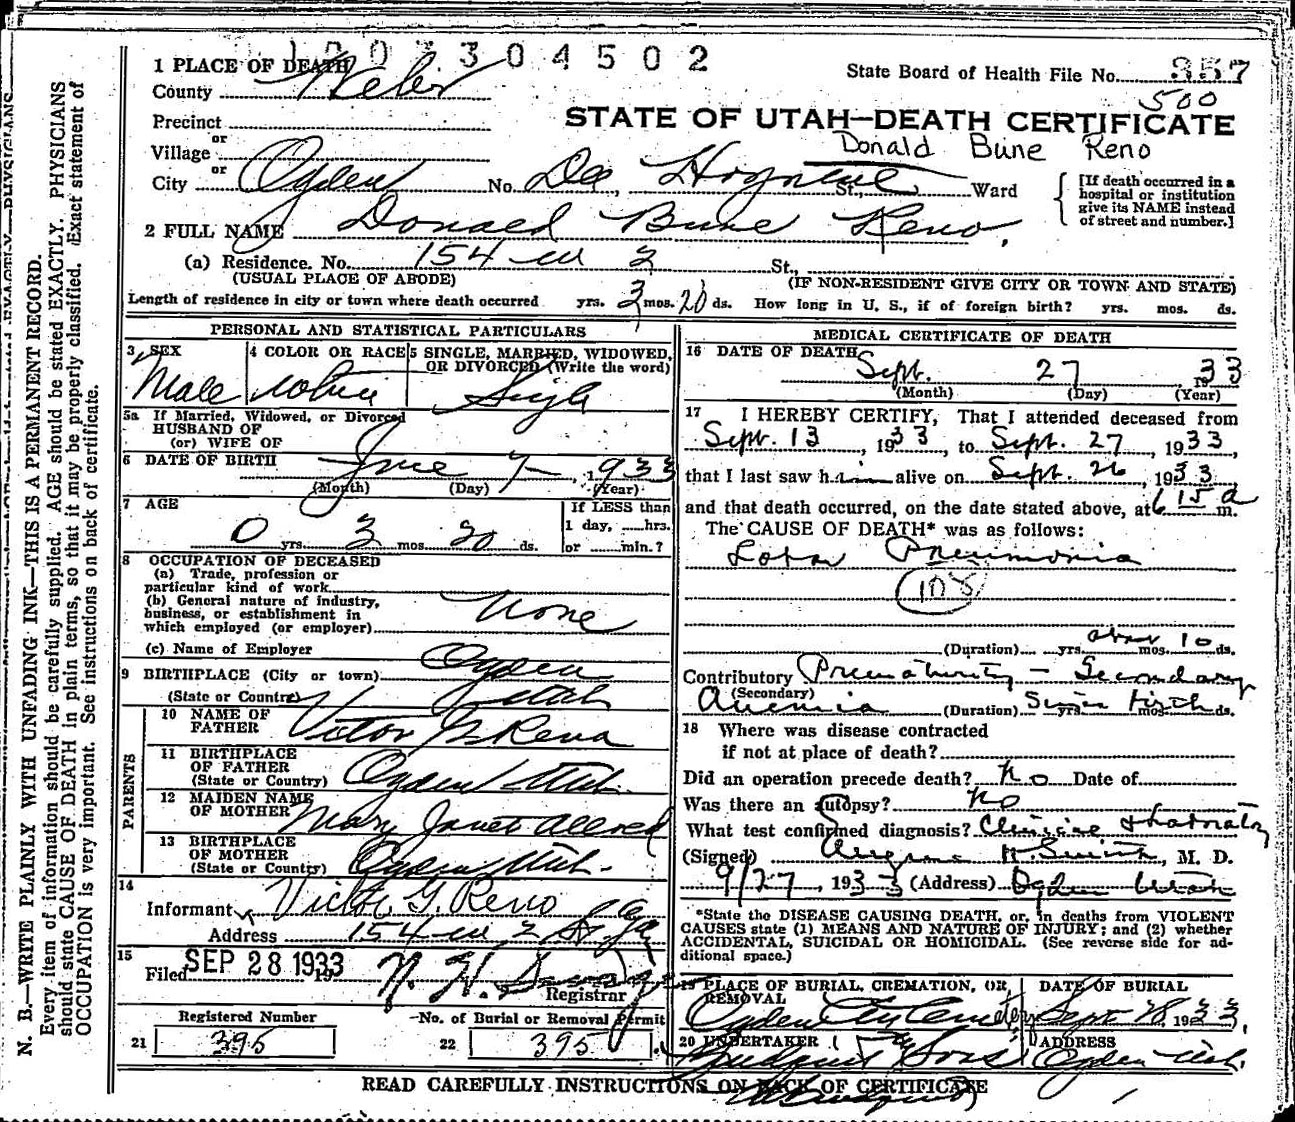 1003304502
1 PLACE OF DEATH
County Weber
State Board of Health File No. 357
500
Precinct
STATE OF UTAH—DEATH CERTIFICATE
Donald Bune Reno
or
Village
or
City Ogden No. Dee St., Ward
[If death occurred in a hospital or institution give its NAME instead of street and number.]
2 FULL NAME Donald Bune Reno.
(a) Residence. No. 154 - W 2 St.,
(USUAL PLACE OF ABODE) (IF NON-RESIDENT GIVE CITY OR TOWN AND STATE)
Length of residence in city or town where death occurred yrs. 3 mos. 20 ds. How long in U. S., if of foreign birth? yrs. mos. ds.
PERSONAL AND STATISTICAL PARTICULARS
3 SEX Male
4 COLOR OR RACE White
5 SINGLE, MARRIED, WIDOWED, OR DIVORCED (Write the word) Single
5a If Married, Widowed, or Divorced
HUSBAND OF
(or) WIFE OF
6 DATE OF BIRTH June 7 - 1933
(Month) (Day) (Year)
7 AGE 0 yrs. 3 mos. 20 ds.
If LESS than
1 day, ......hrs.
or ......min.?
8 OCCUPATION OF DECEASED
(a) Trade, profession or
particular kind of work
(b) General nature of industry,
business, or establishment in
which employed (or employer) None
(c) Name of Employer
9 BIRTHPLACE (City or town) Ogden
(State or Country) Utah
PARENTS
10 NAME OF FATHER Victor G. Reno
11 BIRTHPLACE OF FATHER (State or Country) Ogden Utah
12 MAIDEN NAME OF MOTHER Mary Janet Allred
13 BIRTHPLACE OF MOTHER (State or Country) Ogden Utah.
14
Informant Victor G. Reno
Address 154 - W 2 St
15
Filed SEP 28 1933 19
Registrar
Registered Number
21 395
No. of Burial or Removal Permit
22 395
MEDICAL CERTIFICATE OF DEATH
16 DATE OF DEATH Sept. 27 1933
(Month) (Day) (Year)
17 I HEREBY CERTIFY, That I attended deceased from
Sept. 13, 1933, to Sept. 27, 1933,
that I last saw him alive on Sept. 26, 1933,
and that death occurred, on the date stated above, at 6 15 a m.
The CAUSE OF DEATH* was as follows:
Lobar Pneumonia
108
about 10
(Duration) yrs. mos. ds.
Contributory Prematurity - Secondary
(Secondary) Anemia (Duration) Since Birth yrs. mos. ds.
18 Where was disease contracted
if not at place of death?
Did an operation precede death? No Date of
Was there an autopsy? No
What test confirmed diagnosis? Clinical & laboratory
(Signed) M. D.
9/27, 1933 (Address) Ogden Utah
*State the DISEASE CAUSING DEATH, or, in deaths from VIOLENT
CAUSES state (1) MEANS AND NATURE OF INJURY; and (2) whether
ACCIDENTAL, SUICIDAL OR HOMICIDAL. (See reverse side for ad-
ditional space.)
19 PLACE OF BURIAL, CREMATION, OR REMOVAL
Ogden City Cemetery
DATE OF BURIAL
Sept 28 1933,
20 UNDERTAKER
& Sons
ADDRESS
Ogden Utah.
READ CAREFULLY INSTRUCTIONS ON BACK OF CERTIFICATE
N. B.—WRITE PLAINLY WITH UNFADING INK—THIS IS A PERMANENT RECORD.
Every item of information should be carefully supplied. AGE should be stated EXACTLY. PHYSICIANS
should state CAUSE OF DEATH in plain terms, so that it may be properly classified. Exact statement of
OCCUPATION is very important. See instructions on back of certificate.